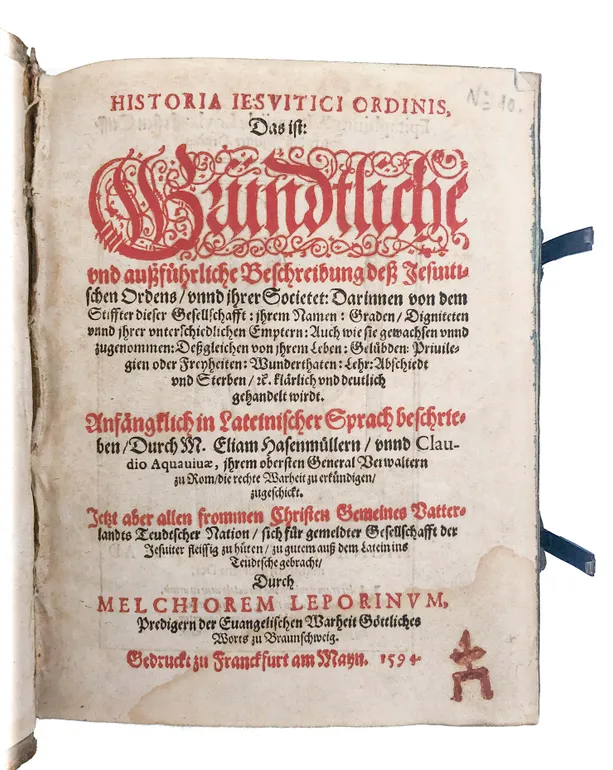 HISTORIA IESVITICI ORDINIS,
Das ist:
Gründtliche
vnd außführliche Beschreibung deß Jesuiti-
schen Ordens / vnnd jhrer Societet: Darinnen von dem
Stiffter dieser Gesellschafft: jhrem Namen: Graden / Digniteten
vnnd jhrer vnterschiedlichen Emptern: Auch wie sie gewachsen vnnd
zugenommen: Deßgleichen von jhrem Leben: Gelübden: Priuile-
gien oder Freyheiten: Wunderthaten: Lehr: Abschiedt
vnd Sterben / ꝛc. klärlich vnd deutlich
gehandelt wirdt.
Anfängklich in Lateinischer Sprach beschrie-
ben / Durch M. Eliam Hasenmüllern / vnnd Clau-
dio Aquauiuæ, jhrem obersten General Verwaltern
zu Rom / die rechte Warheit zu erkündigen /
zugeschickt.
Jetzt aber allen frommen Christen Gemeines Vatter-
landts Teudtscher Nation / sich für gemeldter Gesellschafft der
Jesuiter fleissig zu hüten / zu gutem auß dem Latein ins
Teudtsche gebracht /
Durch
MELCHIOREM LEPORINVM,
Predigern der Euangelischen Warheit Göttliches
Worts zu Braunschweig.
Gedruckt zu Franckfurt am Mayn. 1594